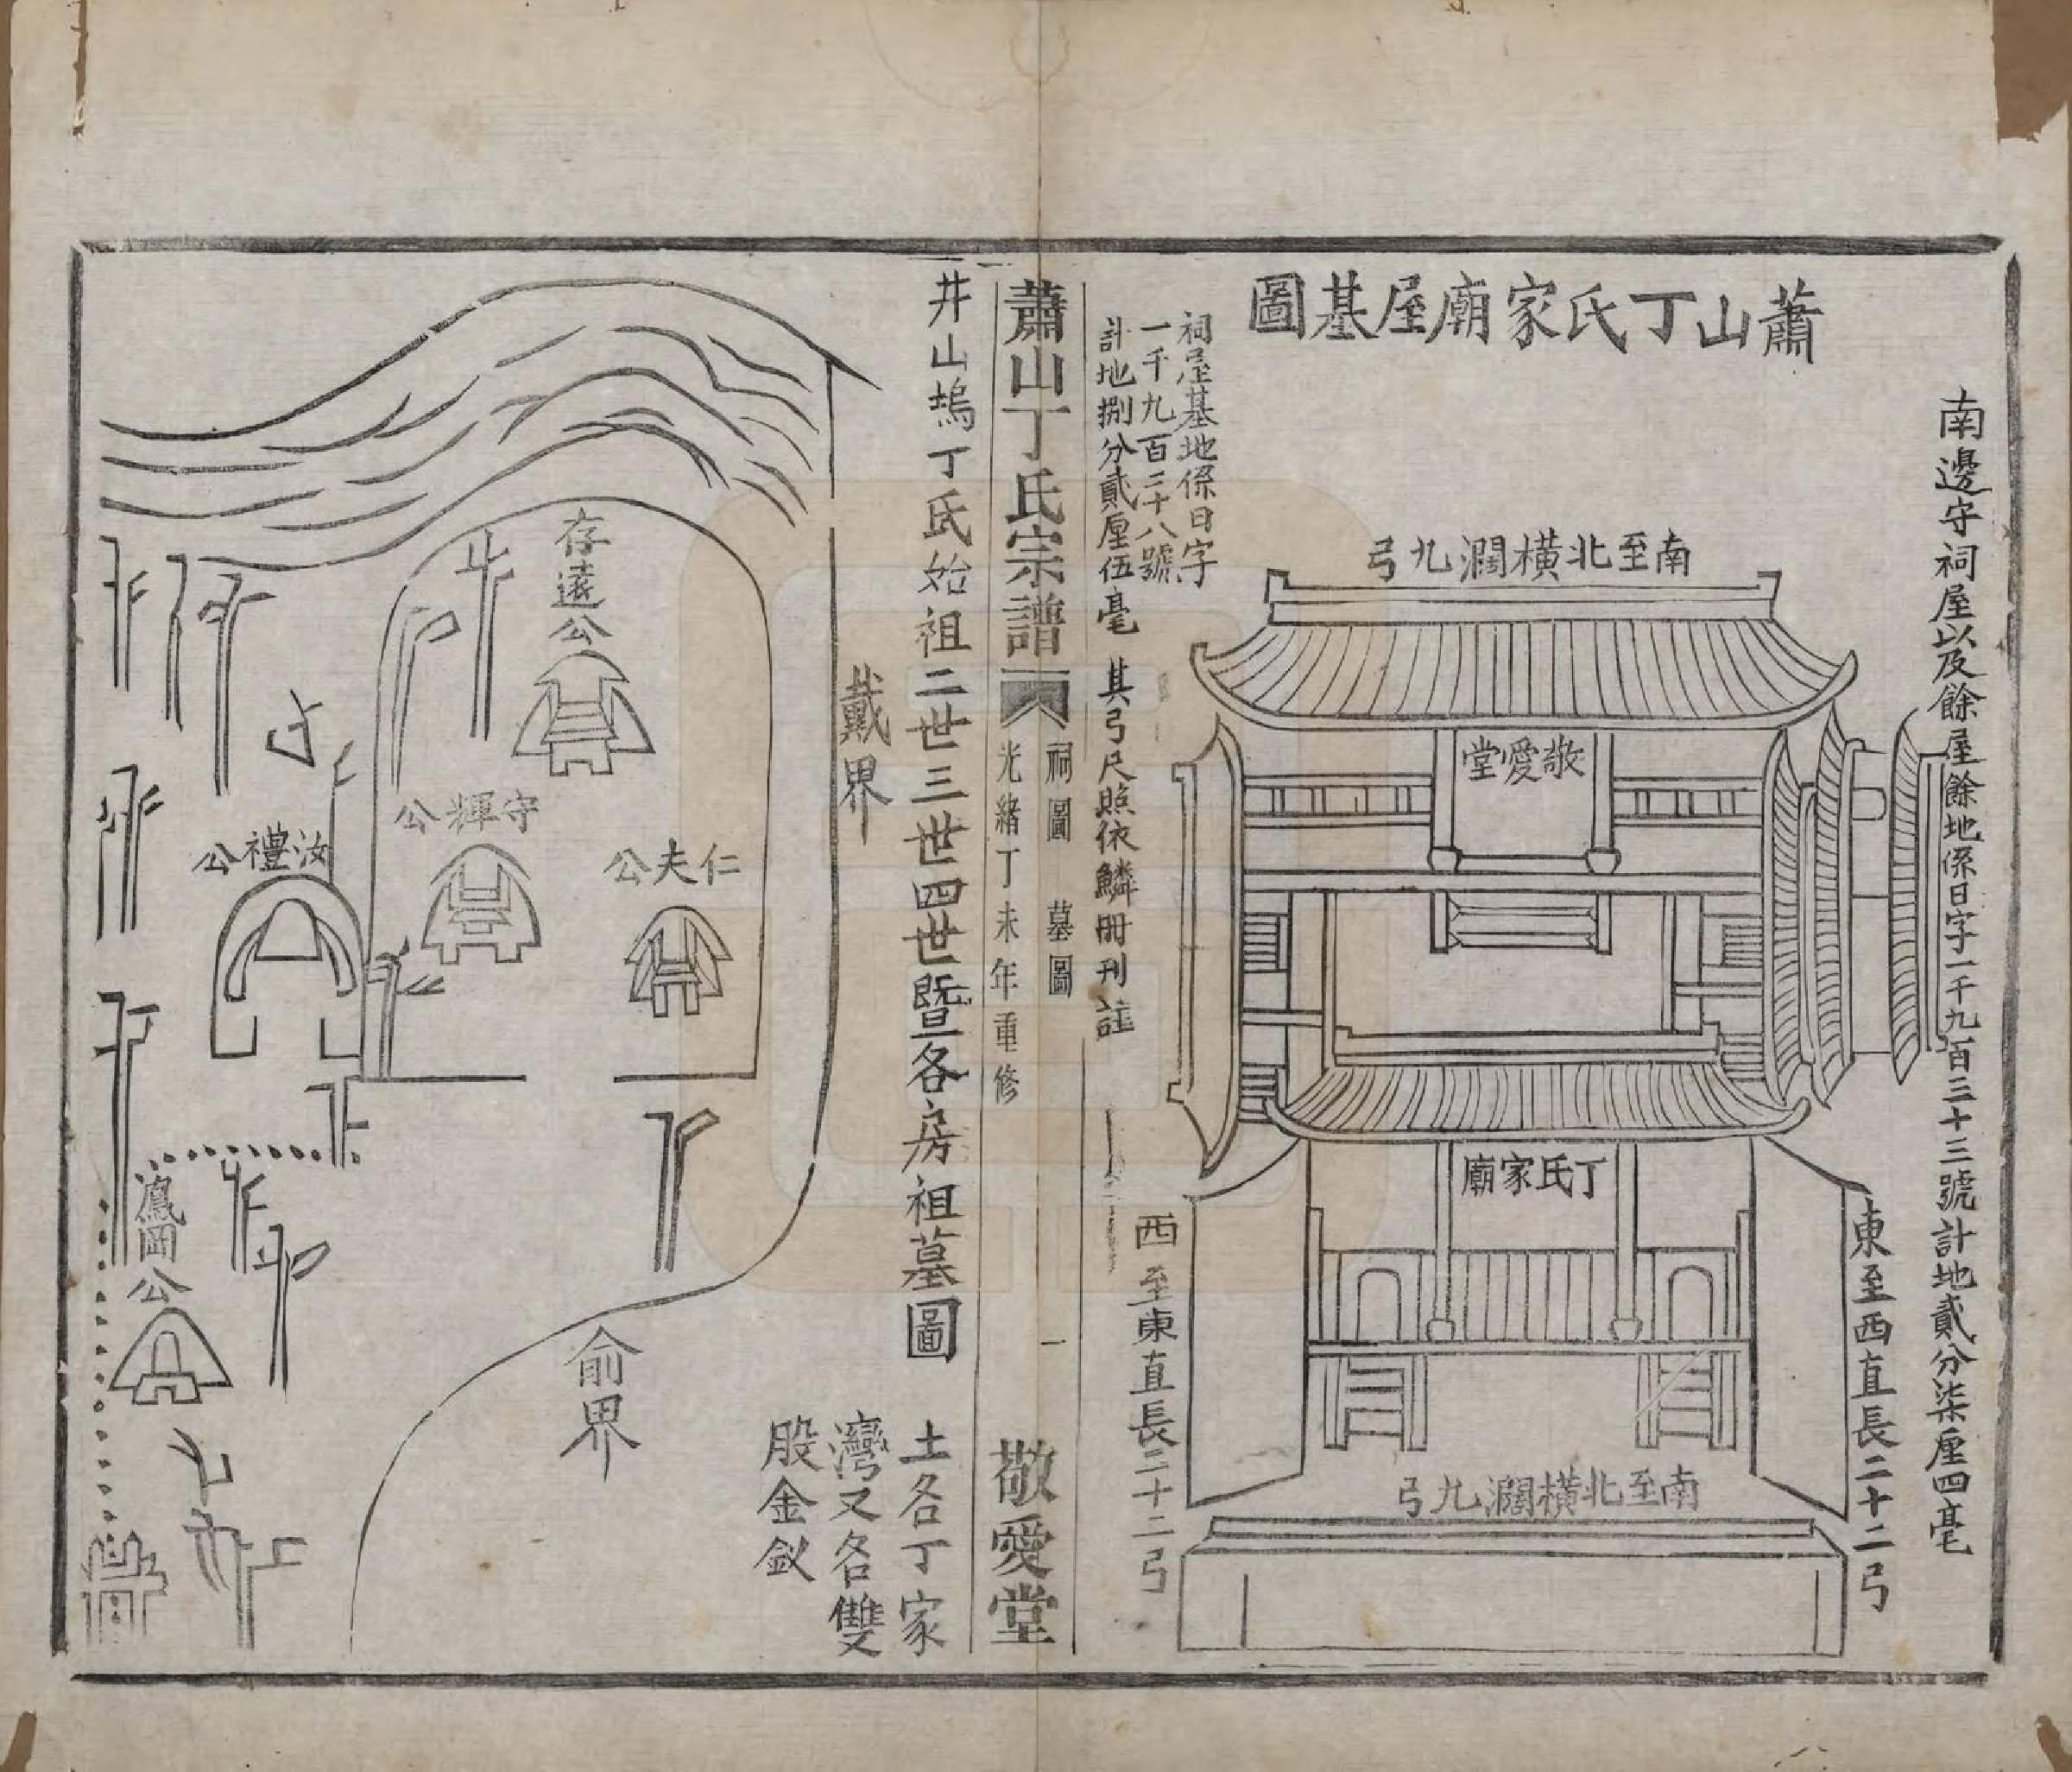 蕭山丁氏家廟屋基圖
南邊守祠屋以及餘屋餘地係日字一千九百三十三號計地貳分柒厘四毫
南至北橫濶九弓
敬愛堂
丁氏家廟
東至西直長二十二弓
南至北橫濶九弓
西至東直長二十二弓
祠屋基地係日字
一千九百三十八號
計地捌分貳厘伍毫 其弓尺照依鱗冊刊註
蕭山丁氏宗譜
祠圖 墓圖
光緒丁未年重修
一
敬愛堂
井山塢丁氏始祖二世三世四世暨各房祖墓圖
土名丁家
灣又名雙
股金釵
戴界
俞界
存遠公
守輝公
仁夫公
汝禮公
鳳岡公